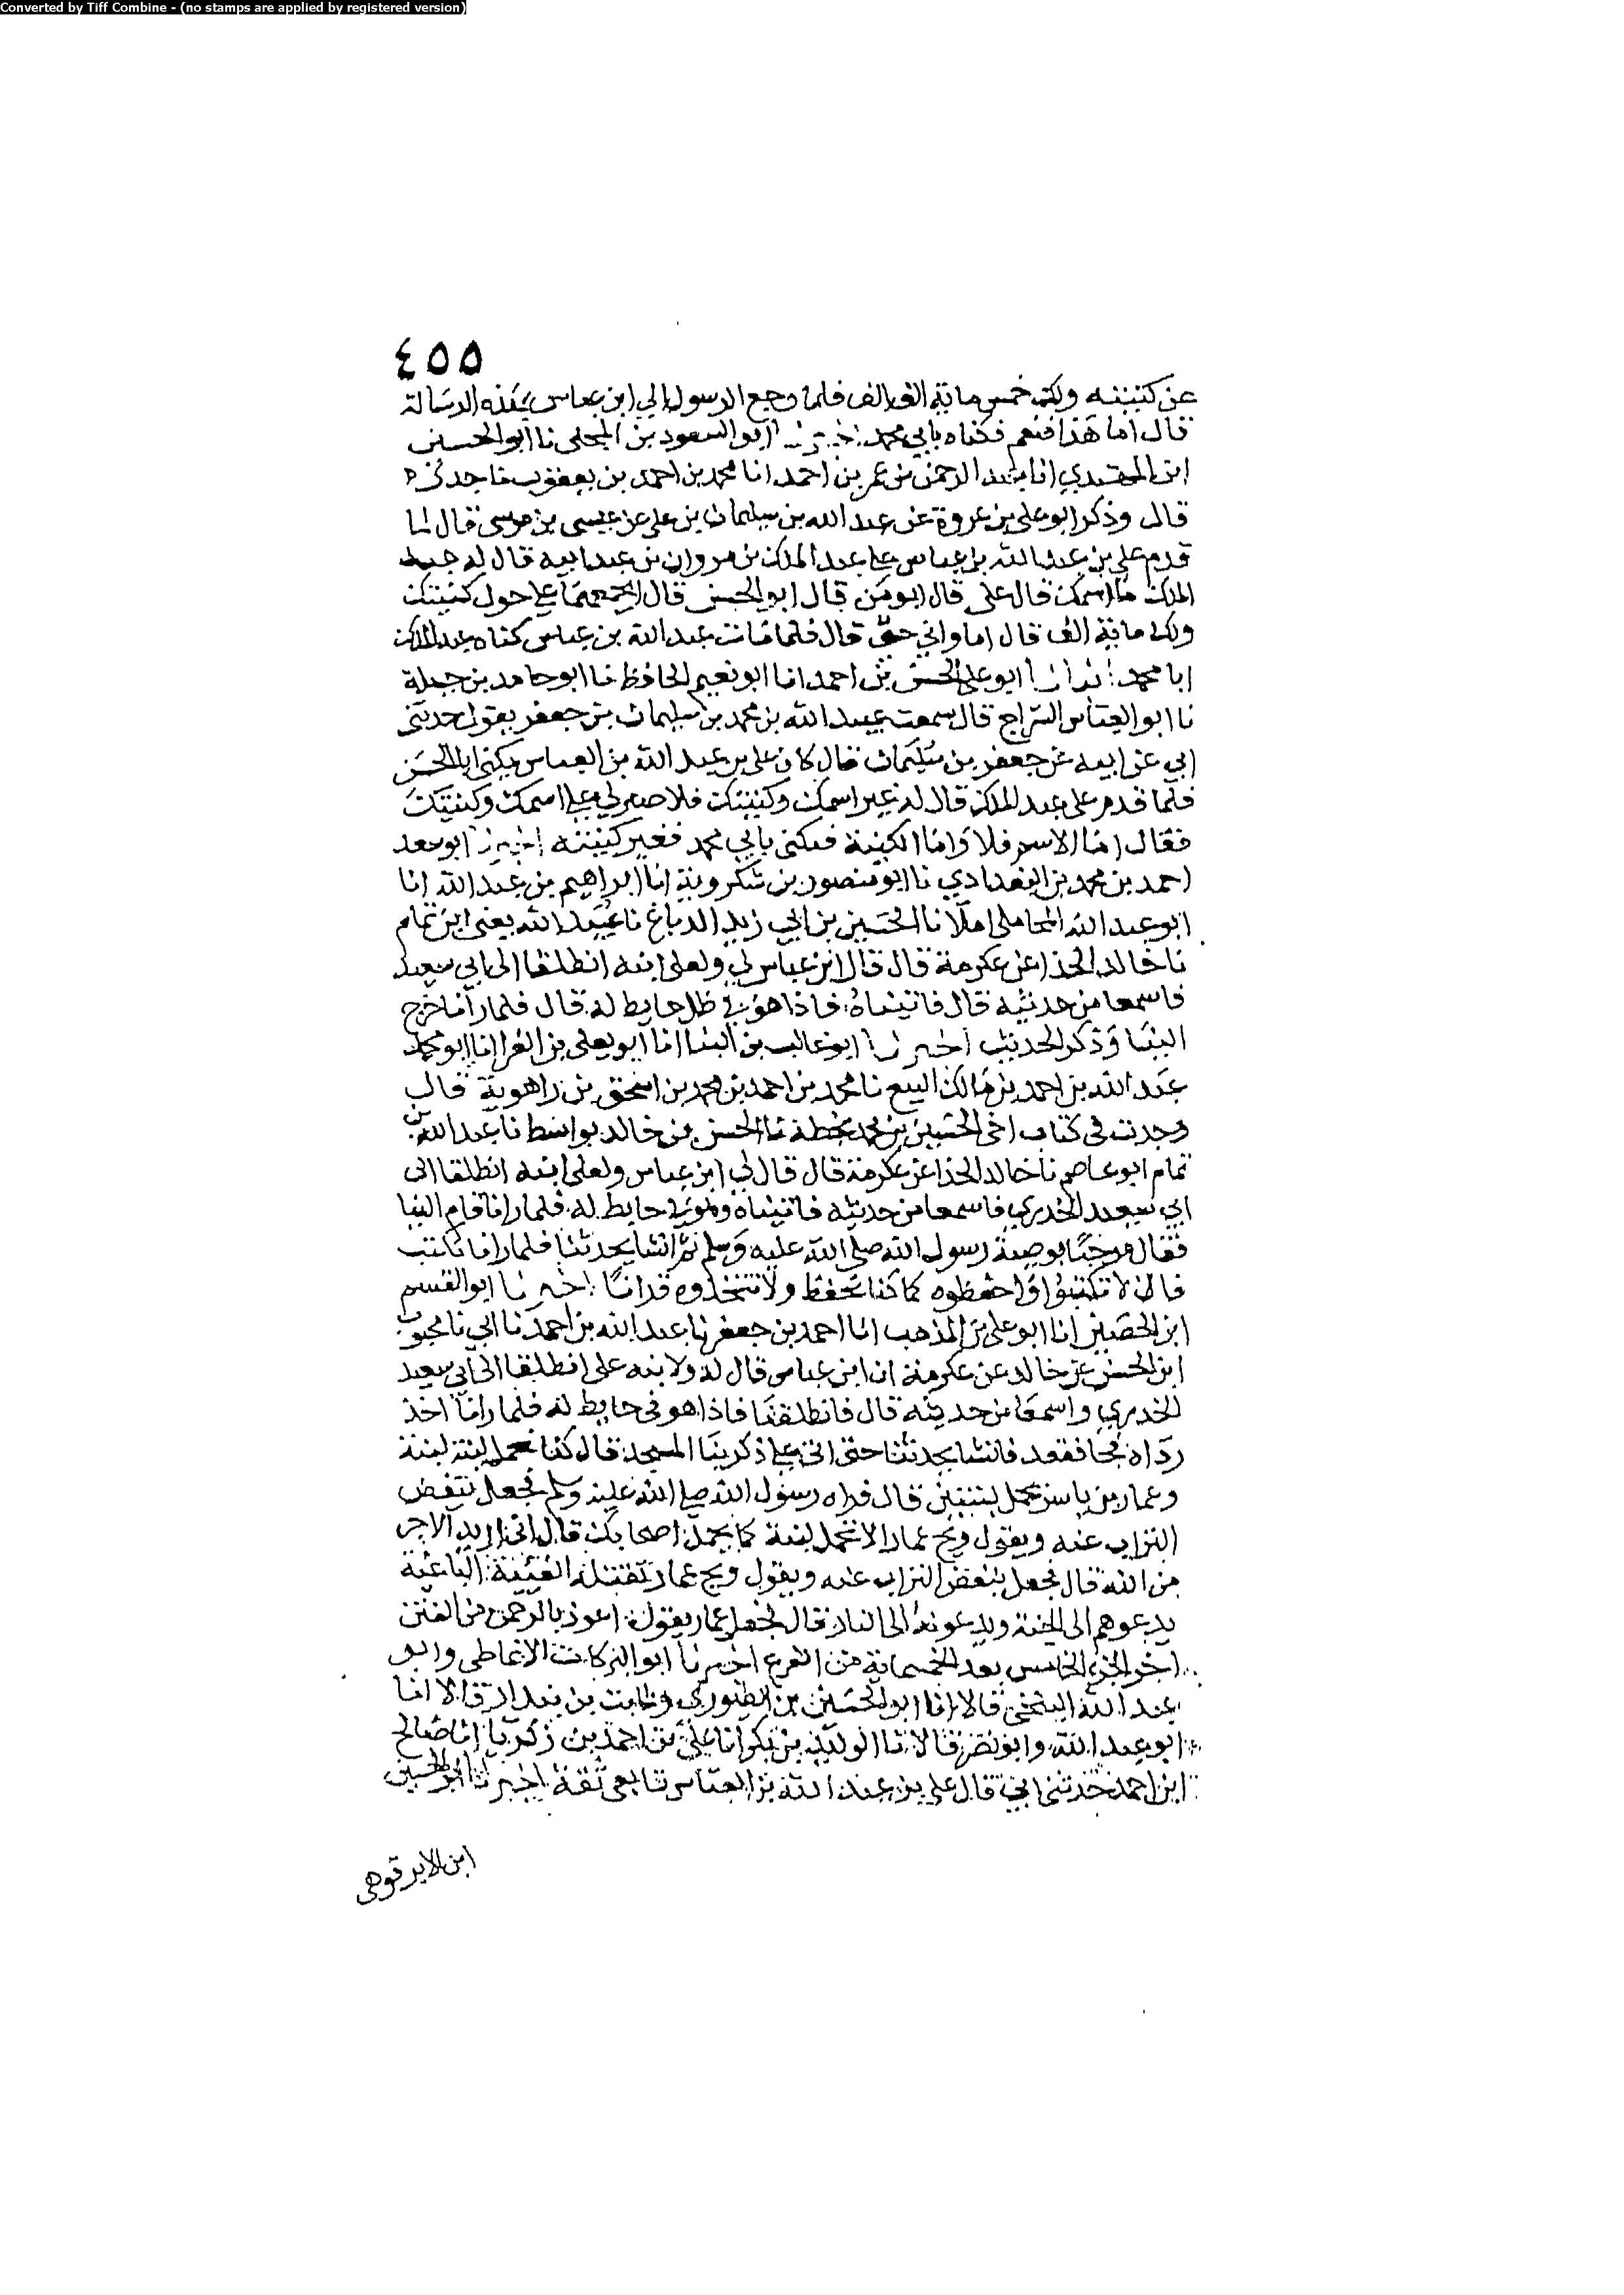 Converted by Tiff Combine - (no stamps are applied by registered version)
٤٥٥
عن كنيته ولك خمس ماية الف الف فلما رجع الرسول الي ابن عباس بهذه الرسالة
قال اما هذا فنعم فكناه بابي محمد اخبرنا ابو السعود بن المجلي نا ابو الحسين
ابن المهتدي انا عبد الرحمن بن عمر بن احمد انا محمد بن احمد بن يعقوب نا جدي
قال وذكر ابو علي بن عروة عن عبد الله بن سليمان بن علي عن عيسى بن موسى قال لما
قدم علي بن عبد الله بن عباس على عبد الملك بن مروان من عند ابيه قال له عبد
الملك ما اسمك قال علي قال ابو من قال ابو الحسن قال اجمعتهما علي حول كنيتك
ولك ماية الف قال اما وابي حي قال فلما مات عبد الله بن عباس كناه عبد الملك
ابا محمد انبانا ابو علي الحسن بن احمد انا ابو نعيم الحافظ نا ابو حامد بن جبلة
نا ابو العباس السراج قال سمعت عبيد الله بن محمد بن سليمان بن جعفر يقول حدثني
ابي عن ابيه عن جعفر بن سليمان قال كان علي بن عبد الله بن العباس يكنى ابا الحسن
فلما قدم على عبد الملك قال له غير اسمك وكنيتك فلا صبر لي على اسمك وكنيتك
فقال اما الاسم فلا واما الكنية فيكنى بابي محمد فغير كنيته اخبرنا ابو سعد
احمد بن محمد بن البغدادي نا ابو منصور بن شكروية انا ابراهيم بن عبد الله انا
ابو عبد الله المحاملي املا نا الحسين بن ابي زيد الدباغ نا عبيد الله يعني ابن تمام
نا خالد الحذا عن عكرمة قال قال ابن عباس لي ولعلي ابنه انطلقا الى ابي سعيد
فاسمعا من حديثه قال فاتيناه فاذا هو في ظل حايط له قال فلما رآنا خرج
الينا وذكر الحديث اخبرنا ابو غالب بن البنا انا ابو يعلى بن الفرا انا ابو محمد
عبد الله بن احمد بن مالك البيع نا محمد بن احمد بن محمد بن اسحق بن راهوية قال
وجدت في كتاب اخي الحسين بن محمد بخطه نا الحسن بن خالد بواسط نا عبد الله بن
تمام ابو عاصم نا خالد الحذا عن عكرمة قال قال لي ابن عباس ولعلي ابنه انطلقا الى
ابي سعيد الخدري فاسمعا من حديثه فاتيناه وهو في حايط له فلما رانا قام الينا
فقال مرحبًا بوصية رسول الله صلى الله عليه وسلم ثم انشا يحدثنا فلما رانا نكتب
قال لا تكتبوا واحفظوه كما كنا نحفظ ولا تتخذوه قرانًا اخبرنا ابو القسم
ابن الحصين انا ابو علي بن المذهب انا احمد بن جعفر نا عبد الله بن احمد نا ابي نا محبوب
ابن الحسن عن خالد عن عكرمة ان ابن عباس قال له ولابنه علي انطلقا الى ابي سعيد
الخدري واسمعا من حديثه قال فانطلقنا فاذا هو في حايط له فلما رانا اخذ
رداه فجا فقعد فانشا يحدثنا حتى اتى على ذكر بنا المسجد قال كنا نحمل لبنة لبنة
وعمار بن ياسر يحمل لبنتين قال فراه رسول الله صلى الله عليه وسلم فجعل ينفض
التراب عنه ويقول ويح عمار الا تحمل لبنة كما يحمل اصحابك قال اني اريد الاجر
من الله قال فجعل ينفض التراب عنه ويقول ويح عمار تقتله الفئية الباغية
يدعوهم الى الجنة ويدعونه الى النار قال فجعل عمار يقول اعوذ بالرحمن من الفتن
اخر الجزء الخامس بعد الخمسماية من الفرع اخبرنا ابو البركات الانماطي وابو
عبد الله البلخي قالا انا ابو الحسين بن الطيوري وثابت بن بندار قالا انا
ابو عبد الله وابو نصر قالا نا الوليد بن بكر انا علي بن احمد بن زكريا انا صالح
ابن احمد حدثني ابي قال علي بن عبد الله بن العباس تابعي ثقة اخبرنا ابو الحسين
ابن الابرقوهي